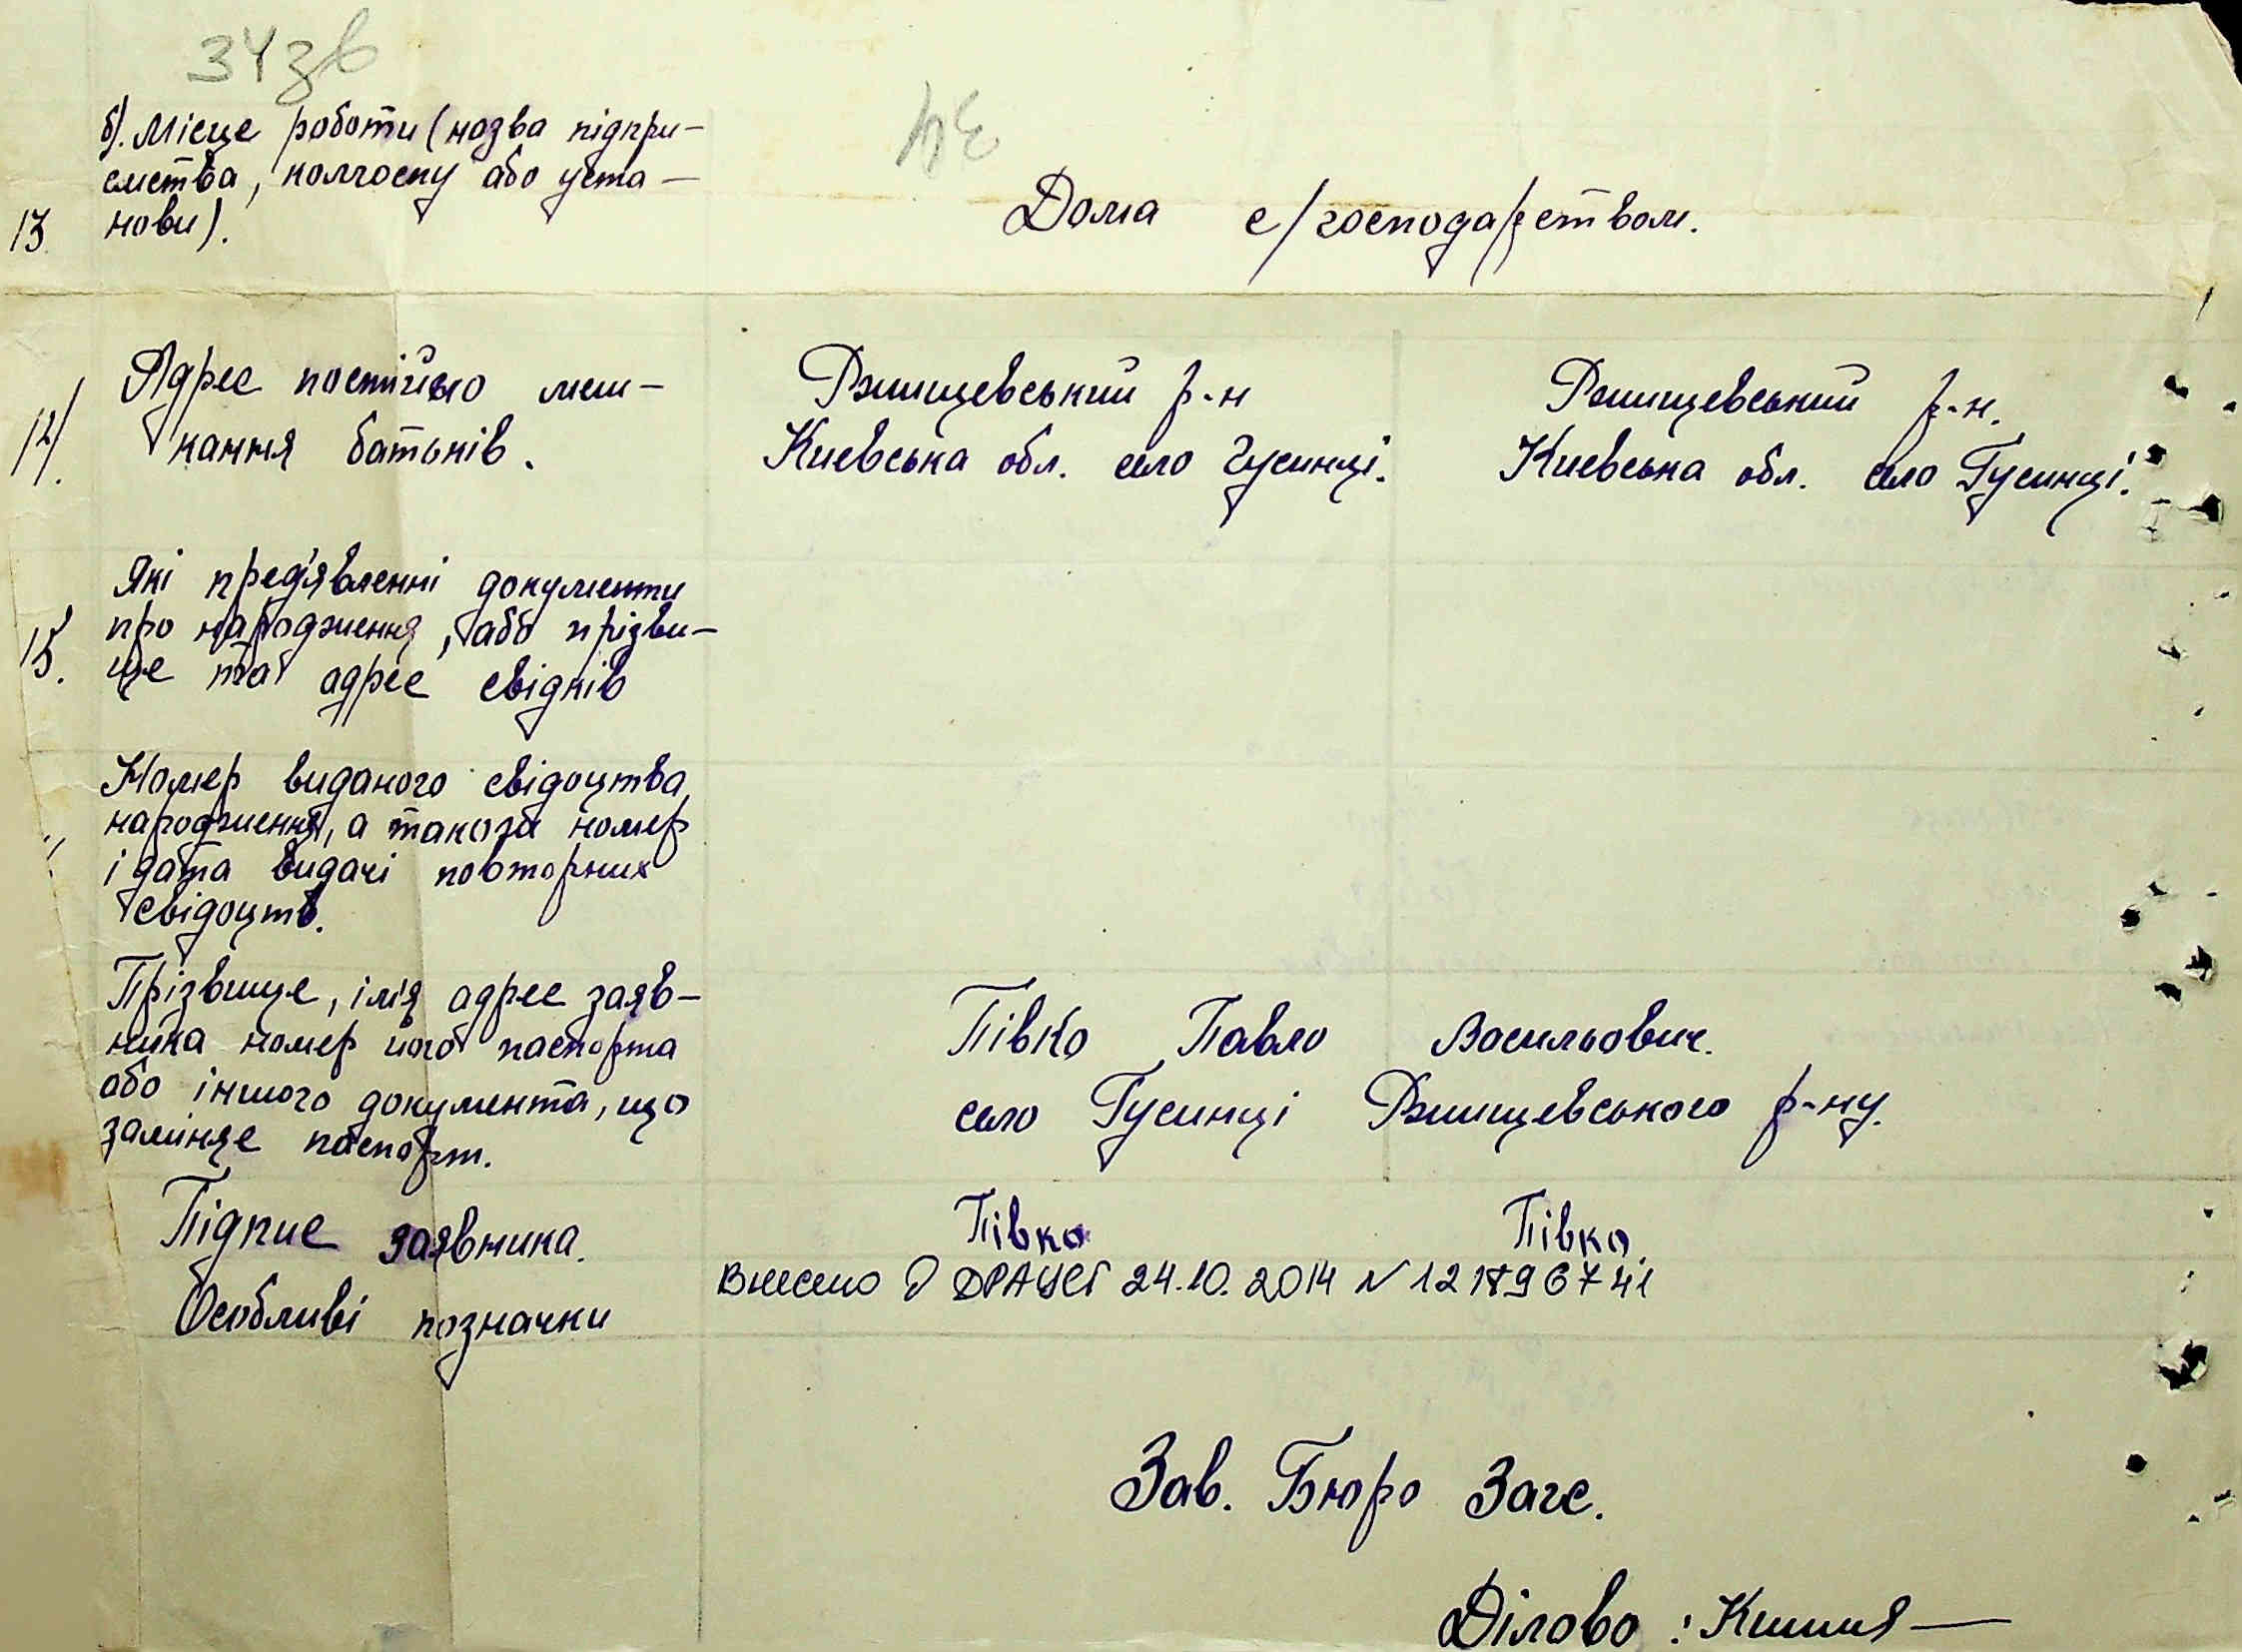 34зв
34
б). Місце роботи (назва підпри-
ємства, колгоспу або уста-
13. нови).
Дома с/господарством.
14. Адрес постійно меш-
кання батьків.
Ржищевський р-н
Киевська обл. село Гусинці.
Ржищевський р-н.
Киевська обл. село Гусинці.
Які пред'явленні документи
15. про народження, або прізви-
ще та адрес свідків
Номер виданого свідоцтва
народження, а також номер
і дата видачі повторних
свідоцтв.
Прізвище, ім'я адрес заяв-
ника номер його паспорта
або іншого документа, що
заміняє паспорт.
Півко Павло Васильович.
село Гусинці Ржищевського р-ну.
Підпис заявника.
Півко Півко.
Особливі позначки
Внесено в ДРАЦСГ 24.10.2014 №
Зав. Бюро Загс.
Діловод: